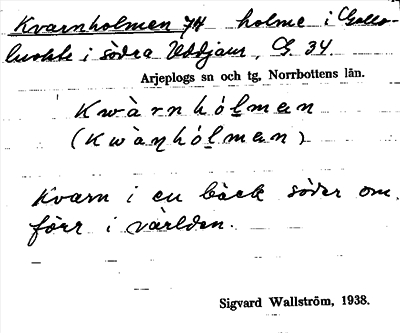 Kvarnholmen 74 holme i Galla-
luokte i södra Uddjaur, G. 34.
Arjeplogs sn och tg, Norrbottens län.
Kwàrnhól̲man
(Kwàn̥hól̲man)
Kvarn i en bäck söder om.
förr i världen.
Sigvard Wallström, 1938.